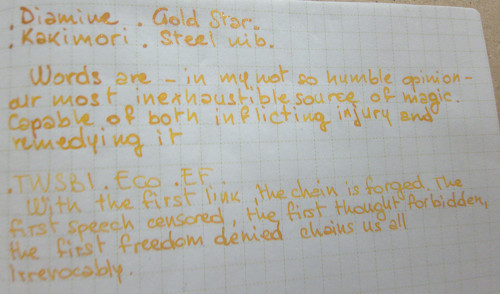 . Diamine . Gold Star.
. Kakimori . Steel nib.
Words are - in my not so humble opinion -
our most inexhaustible source of magic.
Capable of both inflicting injury and
remedying it
. TWSBI . Eco . EF .
With the first link, the chain is forged. The
first speech censored, the first thought forbidden,
the first freedom denied chains us all
Irrevocably.